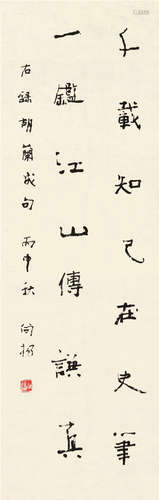 千載知己在史筆
一鑑江山傳謨真
右錄胡蘭成句 丙申秋